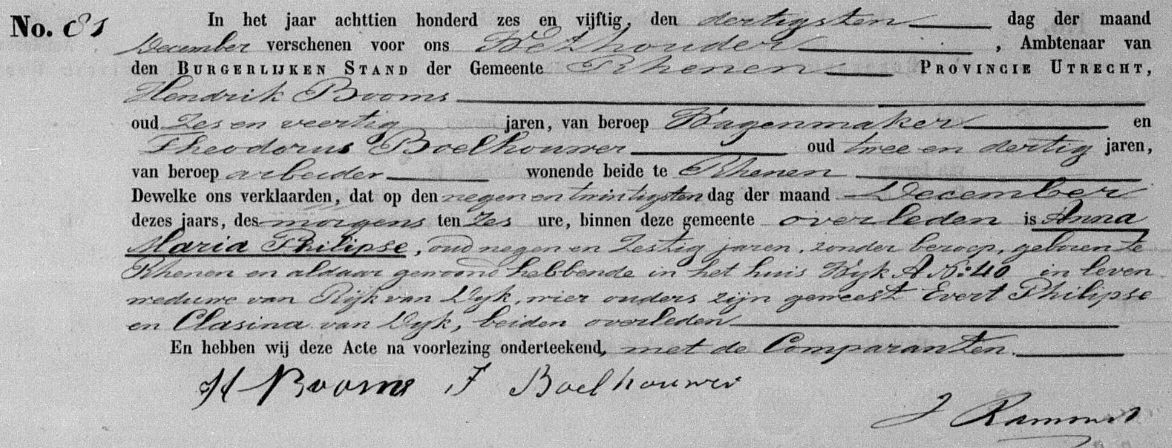 No. 81 In het jaar achttien honderd zes en vijftig, den dertigsten dag der maand
December verschenen voor ons Wethouder, Ambtenaar van
den BURGERLIJKEN STAND der Gemeente Rhenen PROVINCIE UTRECHT,
Hendrik Booms
oud Zes en veertig jaren, van beroep Wagenmaker en
Theodorus Boelhouwer oud twee en dertig jaren,
van beroep arbeider wonende beide te Rhenen
Dewelke ons verklaarden, dat op den negen en twintigsten dag der maand December
dezes jaars, des morgens ten Zes ure, binnen deze gemeente overleden is Anna
Maria Philipse, oud negen en Zestig jaren, zonder beroep, geboren te
Rhenen en aldaar gewoond hebbende in het huis Wijk A No: 40 in leven
weduwe van Rijk van Dyk, wier ouders zijn geweest Evert Philipse
en Clasina van Dyk, beiden overleden
En hebben wij deze Acte na voorlezing onderteekend, met de Comparanten.
H Booms T Boelhouwer
J Rammel